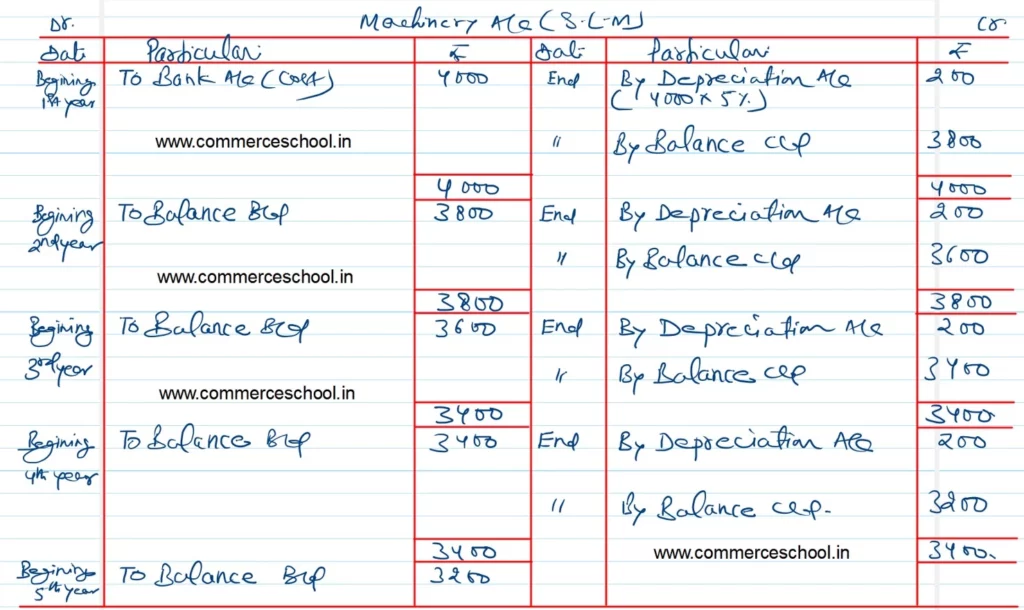 Dr. Machinery A/c (S.L.M) Cr.
Date Particulars ₹ Date Particulars ₹
Begining 1st year To Bank A/c (Cost) 4000 End By Depreciation A/c 200
(4000 x 5%)
www.commerceschool.in " By Balance c/d 3800
4000 4000
Begining To Balance B/d 3800 End By Depreciation A/c 200
2nd year " By Balance c/d 3600
www.commerceschool.in
3800 3800
Begining To Balance B/d 3600 End By Depreciation A/c 200
3rd year " By Balance c/d 3400
www.commerceschool.in
3400 3400.
Begining To Balance B/d 3400 End By Depreciation A/c 200
4th year
" By Balance c/d. 3200
3400 www.commerceschool.in 3400.
Begining To Balance B/d 3200
5th year